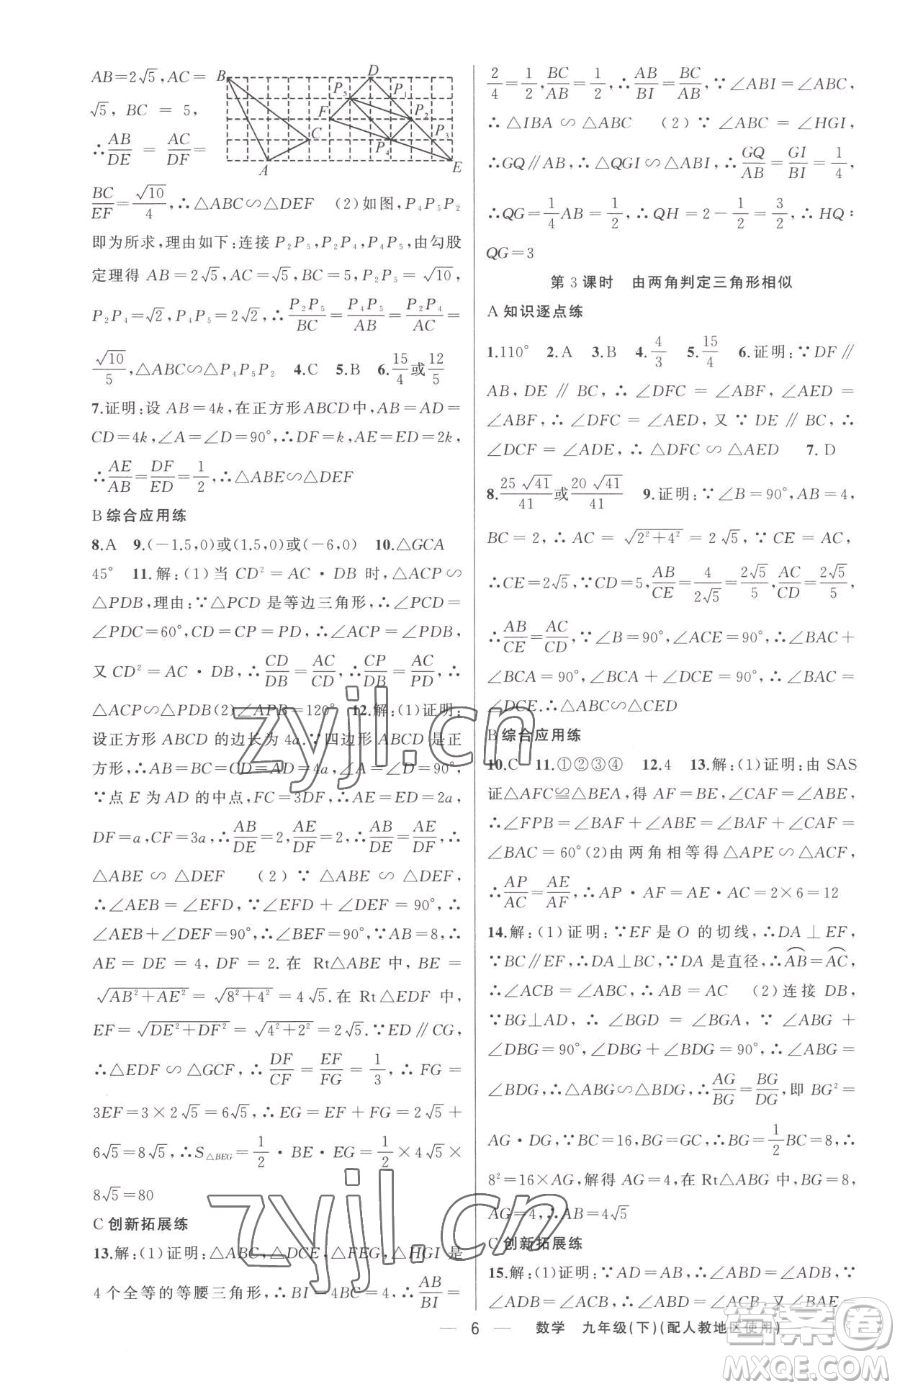 AB=2√5, AC=
√5, BC = 5,
∴AB/DE = AC/DF =
BC/EF=√10/4, ∴△ABC∽△DEF (2)如图, P₄P₅P₂
即为所求,理由如下:连接 P₂P₅, P₂P₄, P₄P₅, 由勾股
定理得 AB=2√5, AC=√5, BC=5, P₂P₅=√10,
P₂P₄=√2, P₄P₅=2√2, ∴P₂P₅/BC=P₄P₅/AB=P₂P₄/AC=
√10/5, △ABC∽△P₄P₅P₂ 4.C 5.B 6.15/4或12/5
7.证明:设 AB=4k, 在正方形 ABCD 中, AB=AD=
CD=4k, ∠A=∠D=90°, ∴DF=k, AE=ED=2k,
∴AE/AB=DF/ED=1/2, ∴△ABE∽△DEF
B 综合应用练
8.A 9.(-1.5,0)或(1.5,0)或(-6,0) 10.△GCA
45° 11.解:(1)当 CD²=AC·DB 时, △ACP∽
△PDB, 理由:∵△PCD 是等边三角形, ∴∠PCD=
∠PDC=60°, CD=CP=PD, ∴∠ACP=∠PDB,
又 CD²=AC·DB, ∴CD/DB=AC/CD, ∴CP/DB=AC/PD, ∴
△ACP∽△PDB(2)∠APB=120° 12.解:(1)证明:
设正方形 ABCD 的边长为 4a. ∵四边形 ABCD 是正
方形, ∴AB=BC=CD=AD=4a, ∠A=∠D=90°,
∵点 E 为 AD 的中点, FC=3DF, ∴AE=ED=2a,
DF=a, CF=3a, ∴AB/DE=2, AE/DF=2, ∴AB/DE=AE/DF, ∴
△ABE∽△DEF (2)∵△ABE∽△DEF,
∴∠AEB=∠EFD, ∵∠EFD+∠DEF=90°, ∴
∠AEB+∠DEF=90°, ∴∠BEG=90°, ∵AB=8, ∴
AE=DE=4, DF=2. 在 Rt△ABE 中, BE=
√AB²+AE²=√8²+4²=4√5. 在 Rt△EDF 中,
EF=√DE²+DF²=√4²+2²=2√5. ∵ED∥CG,
∴△EDF∽△GCF, ∴DF/CF=EF/FG=1/3, ∴FG=
3EF=3×2√5=6√5, ∴EG=EF+FG=2√5+
6√5=8√5, ∴S△BEG=1/2·BE·EG=1/2×4√5×
8√5=80
C 创新拓展练
13.解:(1)证明:△ABC, △DCE, △FEG, △HGI 是
4 个全等的等腰三角形, ∴BI=4BC=4, ∴AB/BI=
2/4=1/2, BC/AB=1/2, ∴AB/BI=BC/AB, ∵∠ABI=∠ABC,
∴△IBA∽△ABC (2)∵∠ABC=∠HGI,
∴GQ∥AB, ∴△QGI∽△ABI, ∴GQ/AB=GI/BI=1/4,
∴QG=1/4AB=1/2, ∴QH=2-1/2=3/2, ∴HQ:
QG=3
第 3 课时 由两角判定三角形相似
A 知识逐点练
1.110° 2.A 3.B 4.4/3 5.15/4 6.证明:∵DF∥
AB, DE∥BC, ∴∠DFC=∠ABF, ∠AED=
∠ABF, ∴∠DFC=∠AED, 又∵DE∥BC, ∴
∠DCF=∠ADE, ∴△DCF∽△AED 7.D
8.25√41/41或20√41/41 9.证明:∵∠B=90°, AB=4,
BC=2, ∴AC=√2²+4²=2√5, ∵CE=AC,
∴CE=2√5, ∵CD=5, AB/CE=4/2√5=2√5/5, AC/CD=2√5/5,
∴AB/CE=AC/CD, ∵∠B=90°, ∠ACE=90°, ∴∠BAC+
∠BCA=90°, ∠BCA+∠DCE=90°, ∴∠BAC=
∠DCE. ∴△ABC∽△CED
B 综合应用练
10.C 11.①②③④ 12.4 13.解:(1)证明:由 SAS
证△AFC≌△BEA, 得 AF=BE, ∠CAF=∠ABE,
∴∠FPB=∠BAF+∠ABE=∠BAF+∠CAF=
∠BAC=60°(2)由两角相等得△APE∽△ACF,
∴AP/AC=AE/AF, ∴AP·AF=AE·AC=2×6=12
14.解:(1)证明:∵EF 是 O 的切线, ∴DA⊥EF,
∵BC∥EF, ∴DA⊥BC, ∵DA 是直径, ∴AB=AC,
∴∠ACB=∠ABC, ∴AB=AC (2)连接 DB,
∵BG⊥AD, ∴∠BGD=∠BGA, ∵∠ABG+
∠DBG=90°, ∠DBG+∠BDG=90°, ∴∠ABG=
∠BDG, ∴△ABG∽△BDG, ∴AG/BG=BG/DG, 即 BG²=
AG·DG, ∵BC=16, BG=GC, ∴BG=1/2BC=8, ∴
8²=16×AG, 解得 AG=4, 在 Rt△ABG 中, BG=8,
AG=4, ∴AB=4√5
C 创新拓展练
15.解:(1)证明:∵AD=AB, ∴∠ADB=∠ABD,
∵∠ACB=∠ADB, ∴∠ACB=∠ABD, 又∠BAE=
— 6 — 数学 九年级(下)(配人教地区使用)
zyjl.cn
zyjl.cn
答案圈
MXQE.COM